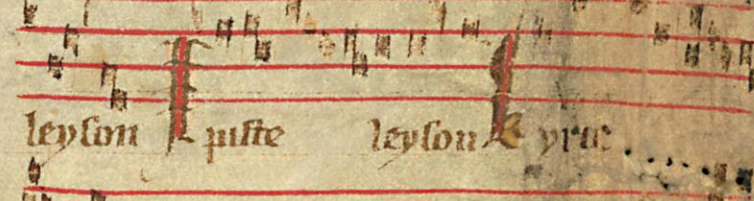 leyson Xpiste leyson Kyrie